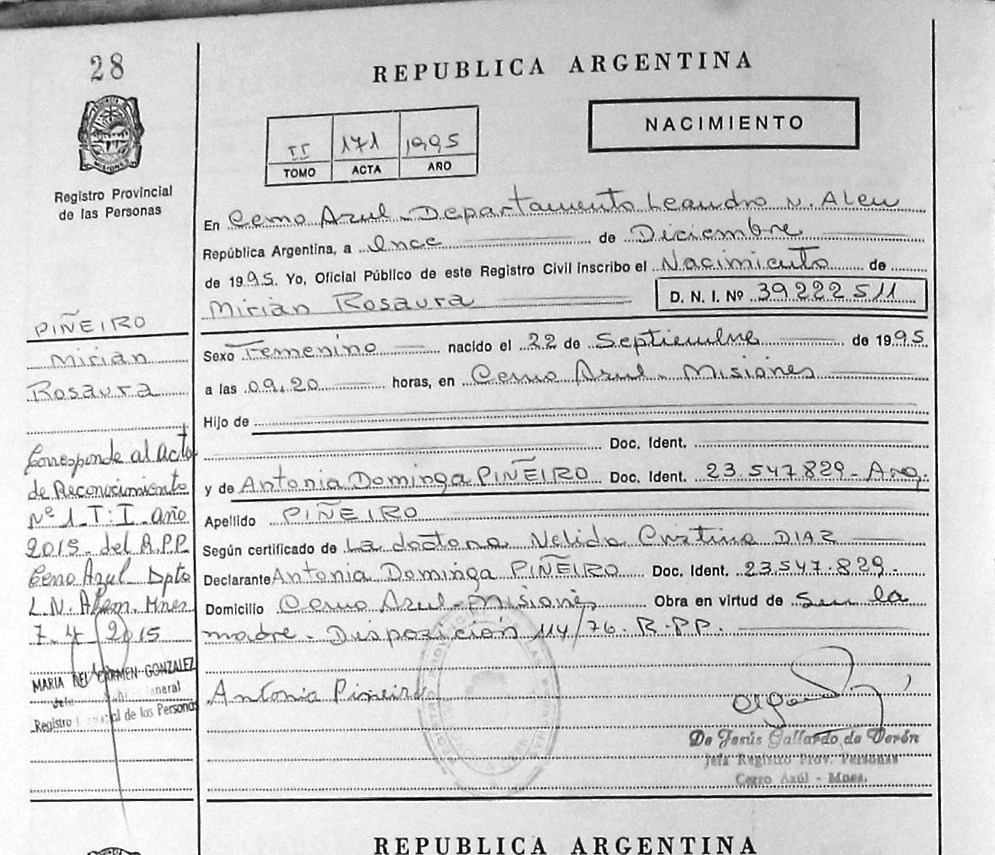 28
REPUBLICA ARGENTINA
NACIMIENTO
II 171 1995
TOMO ACTA AÑO
MISIONES
Registro Provincial
de las Personas
En Cerro Azul - Departamento Leandro N. Alem
República Argentina, a Once de Diciembre
de 1995. Yo, Oficial Público de este Registro Civil inscribo el Nacimiento de
Mirian Rosaura D. N. I. Nº 39.222.511
PIÑEIRO
Mirian
Rosaura
Sexo Femenino nacido el 22 de Septiembre de 1995
a las 09,20 horas, en Cerro Azul - Misiones
Hijo de
Doc. Ident.
y de Antonia Dominga PIÑEIRO Doc. Ident. 23.547.829 - Arg.
Apellido PIÑEIRO
Según certificado de La doctora Nelida Cristina DIAZ
Declarante Antonia Dominga PIÑEIRO Doc. Ident. 23.547.829.
Domicilio Cerro Azul - Misiones Obra en virtud de Ser la
madre - Disposición 114/76. R.PP.
Antonia Piñeiro
Corresponde al Acta
de Reconocimiento
Nº 1 - T: I - año
2015 - del R.P.P.
Cerro Azul - Dpto
L.N. Alem. Mnes
7-4-2015
MARIA DEL CARMEN GONZALEZ
Registro de las Personas
De Jesús Gallardo de Verón
Jefa Registro Prov. Personas
Cerro Azúl - Mnes.
REPUBLICA ARGENTINA